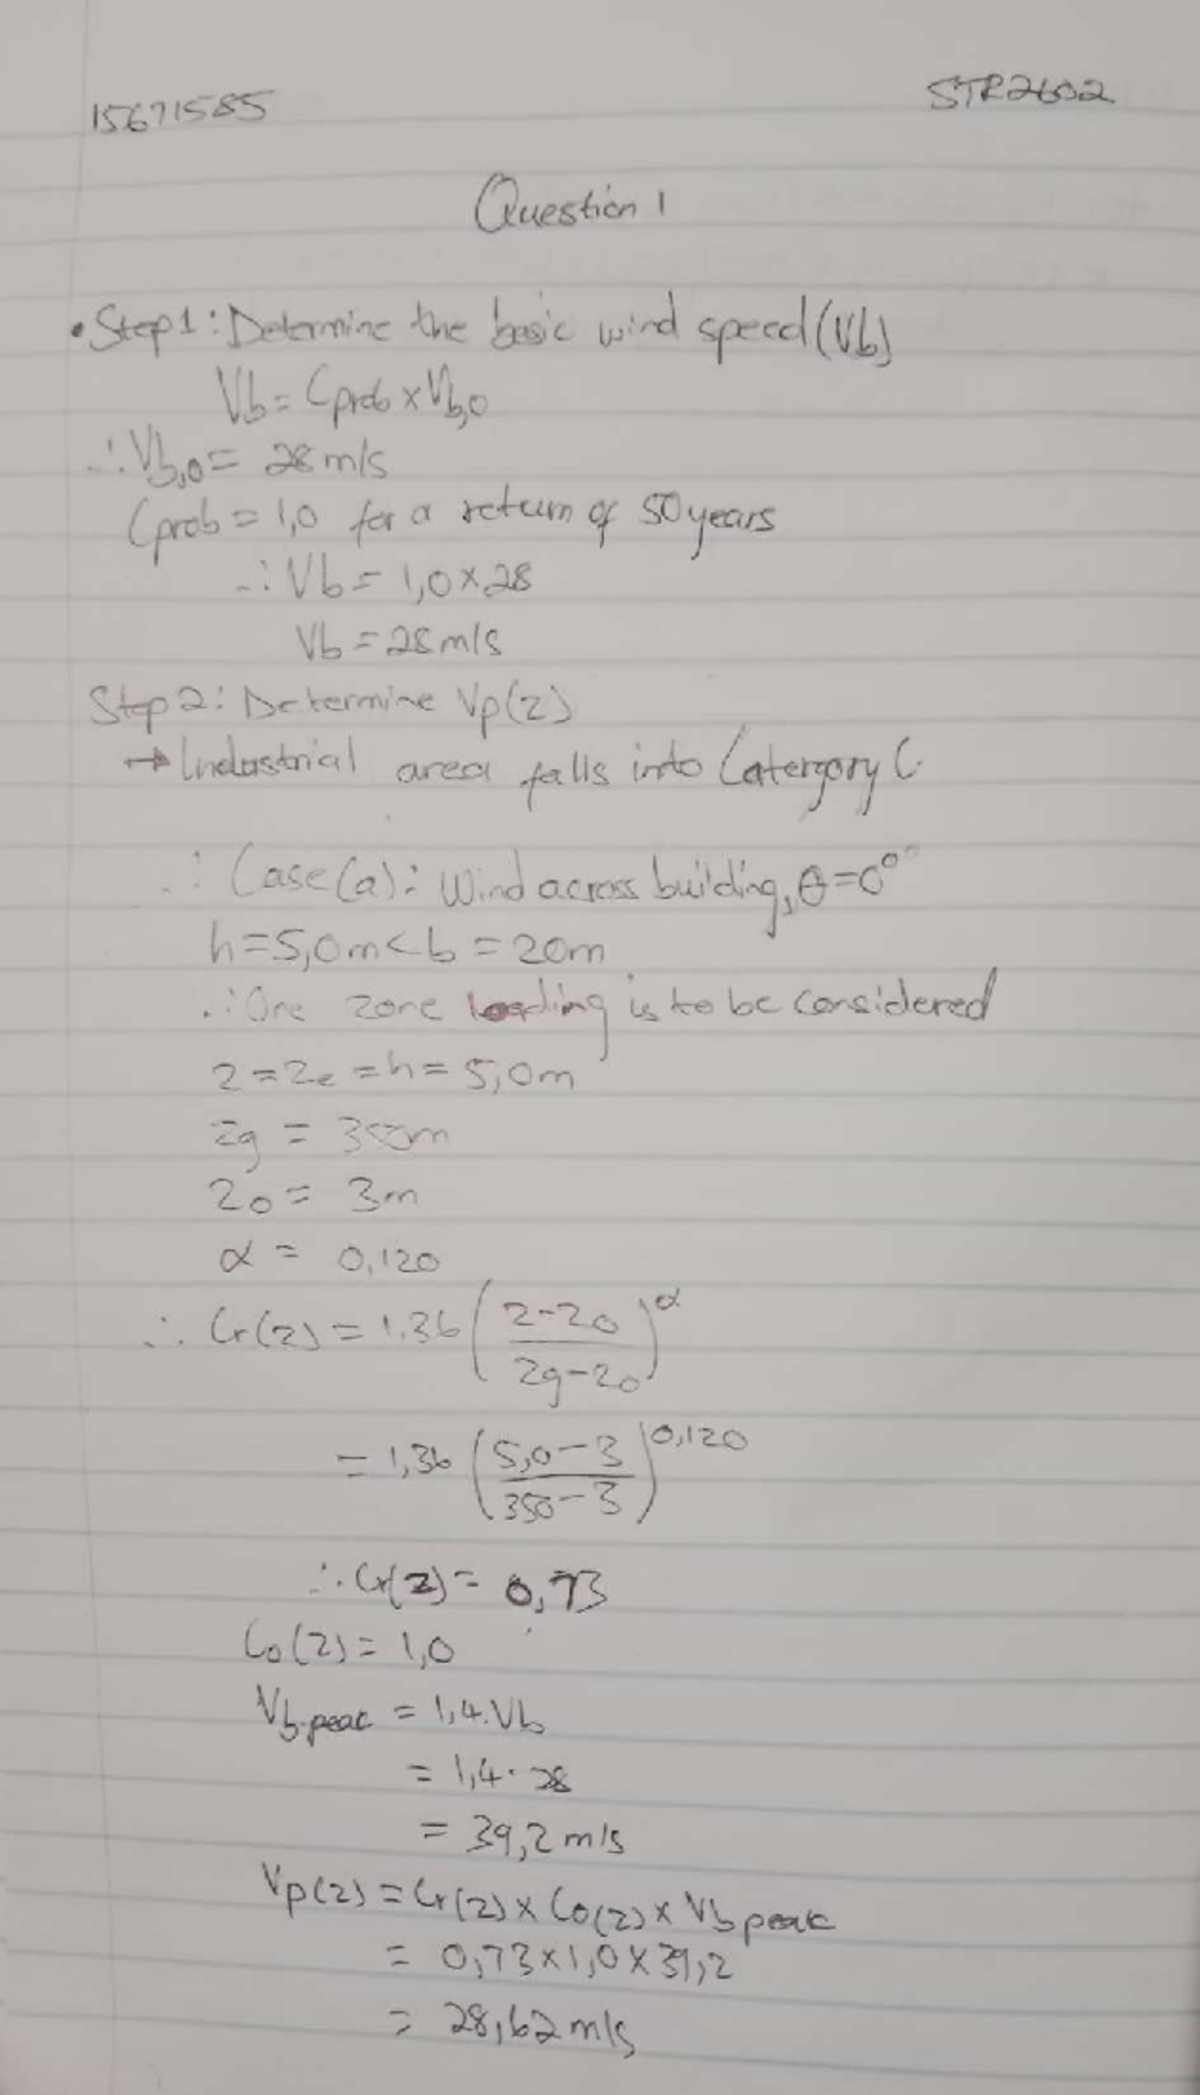 15671585
STR2602
Question 1
• Step1: Determine the basic wind speed (Vb)
Vb = Cprob × Vb,0
∴ Vb,0 = 28 m/s
Cprob = 1,0 for a return of 50 years
∴ Vb = 1,0 × 28
Vb = 28 m/s
Step 2: Determine Vp(z)
→ Industrial area falls into Catergory C.
∴ Case (a): Wind across building, θ = 0°
h = 5,0m < b = 20m
∴ One zone loading is to be considered
z = ze = h = 5,0m
zg = 350m
z0 = 3m
α = 0,120
∴ Cr(z) = 1.36 ((z - z0)/(zg - z0))^α
= 1,36 ((5,0 - 3)/(350 - 3))^0,120
∴ Cr(z) = 0,73
Co(z) = 1,0
Vb.peak = 1,4.Vb
= 1,4 · 28
= 39,2 m/s
Vp(z) = Cr(z) × Co(z) × Vb peak
= 0,73 × 1,0 × 39,2
= 28,62 m/s